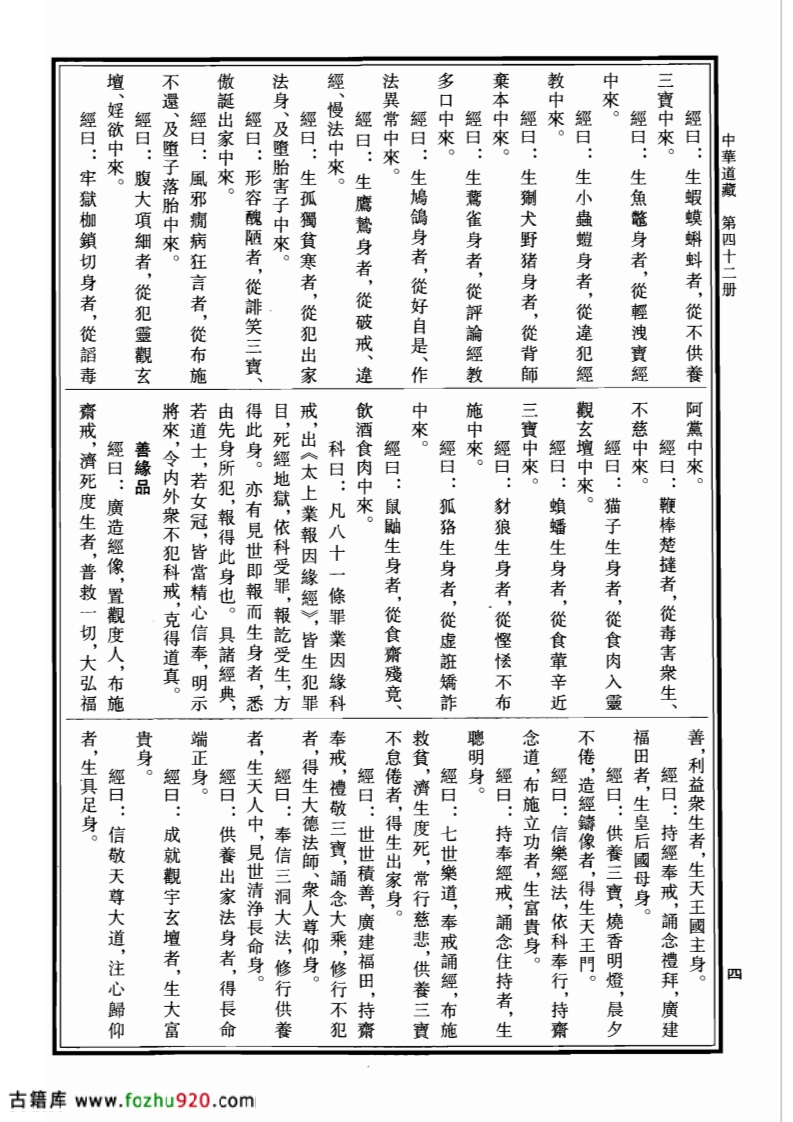 中華道藏　第四十二册
四
經曰：生蝦蟆蝌蚪者，從不供養
三寶中來。
經曰：生魚鼈身者，從輕洩寶經
中來。
經曰：生小蟲螘身者，從違犯經
教中來。
經曰：生猘犬野猪身者，從背師
棄本中來。
經曰：生鶩雀身者，從評論經教
多口中來。
經曰：生鳩鴿身者，從好自是、作
法異常中來。
經曰：生鷹鷲身者，從破戒、違
經、慢法中來。
經曰：生孤獨貧寒者，從犯出家
法身、及墮胎害子中來。
經曰：形容醜陋者，從誹笑三寶、
傲誕出家中來。
經曰：風邪癇病狂言者，從布施
不還、及墮子落胎中來。
經曰：腹大項細者，從犯靈觀玄
壇、婬欲中來。
經曰：牢獄枷鎖切身者，從謟毒
阿黨中來。
經曰：鞭棒楚撻者，從毒害衆生、
不慈中來。
經曰：猫子生身者，從食肉入靈
觀玄壇中來。
經曰：蝜蟠生身者，從食葷辛近
三寶中來。
經曰：豺狼生身者，從慳悋不布
施中來。
經曰：狐狢生身者，從虚誑矯詐
中來。
經曰：鼠鼬生身者，從食齋殘竟、
飲酒食肉中來。
科曰：凡八十一條罪業因緣科
戒，出《太上業報因緣經》，皆生犯罪
目，死經地獄，依科受罪，報訖受生，方
得此身。亦有見世即報而生身者，悉
由先身所犯，報得此身也。具諸經典，
若道士，若女冠，皆當精心信奉，明示
將來，令内外衆不犯科戒，克得道真。
善緣品
經曰：廣造經像，置觀度人，布施
齋戒，濟死度生者，普救一切，大弘福
善，利益衆生者，生天王國主身。
經曰：持經奉戒，誦念禮拜，廣建
福田者，生皇后國母身。
經曰：供養三寶，燒香明燈，晨夕
不倦，造經鑄像者，得生天王門。
經曰：信樂經法，依科奉行，持齋
念道，布施立功者，生富貴身。
經曰：持奉經戒，誦念住持者，生
聰明身。
經曰：七世樂道，奉戒誦經，布施
救貧，濟生度死，常行慈悲，供養三寶
不怠倦者，得生出家身。
經曰：世世積善，廣建福田，持齋
奉戒，禮敬三寶，誦念大乘，修行不犯
者，得生大德法師、衆人尊仰身。
經曰：奉信三洞大法，修行供養
者，生天人中，見世清浄長命身。
經曰：供養出家法身者，得長命
端正身。
經曰：成就觀宇玄壇者，生大富
貴身。
經曰：信敬天尊大道，注心歸仰
者，生具足身。
古籍库 www.fozhu920.com